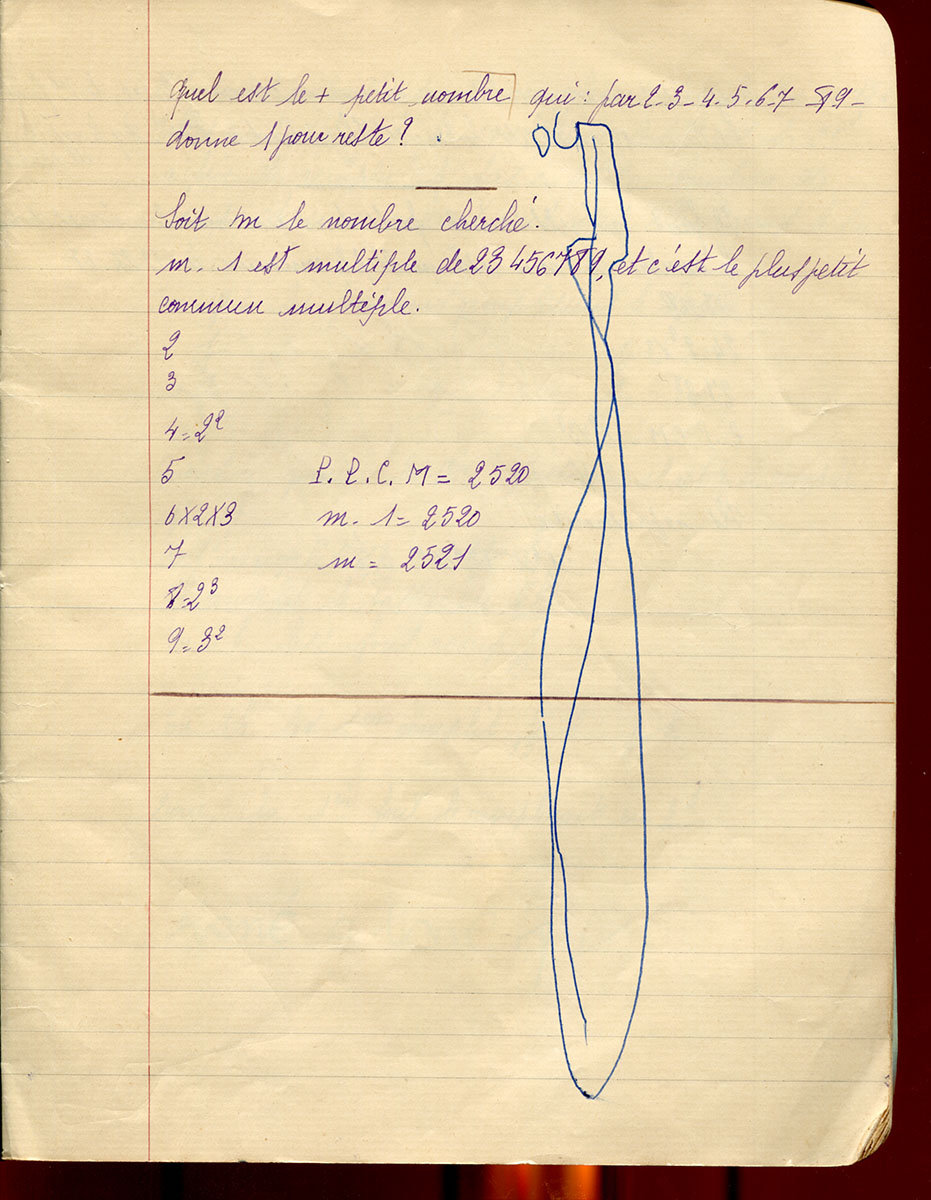 Quel est le + petit nombre qui : par 2-3-4.5.6.7 89-
donne 1 pour reste ?
Soit m le nombre cherché.
m. 1 est multiple de 23456789, et c'est le plus petit
commun multiple.
2
3
4=2²
5 P.P.C.M = 2520
6x2x3 m-1= 2520
7 m = 2521
8=2³
9=3²